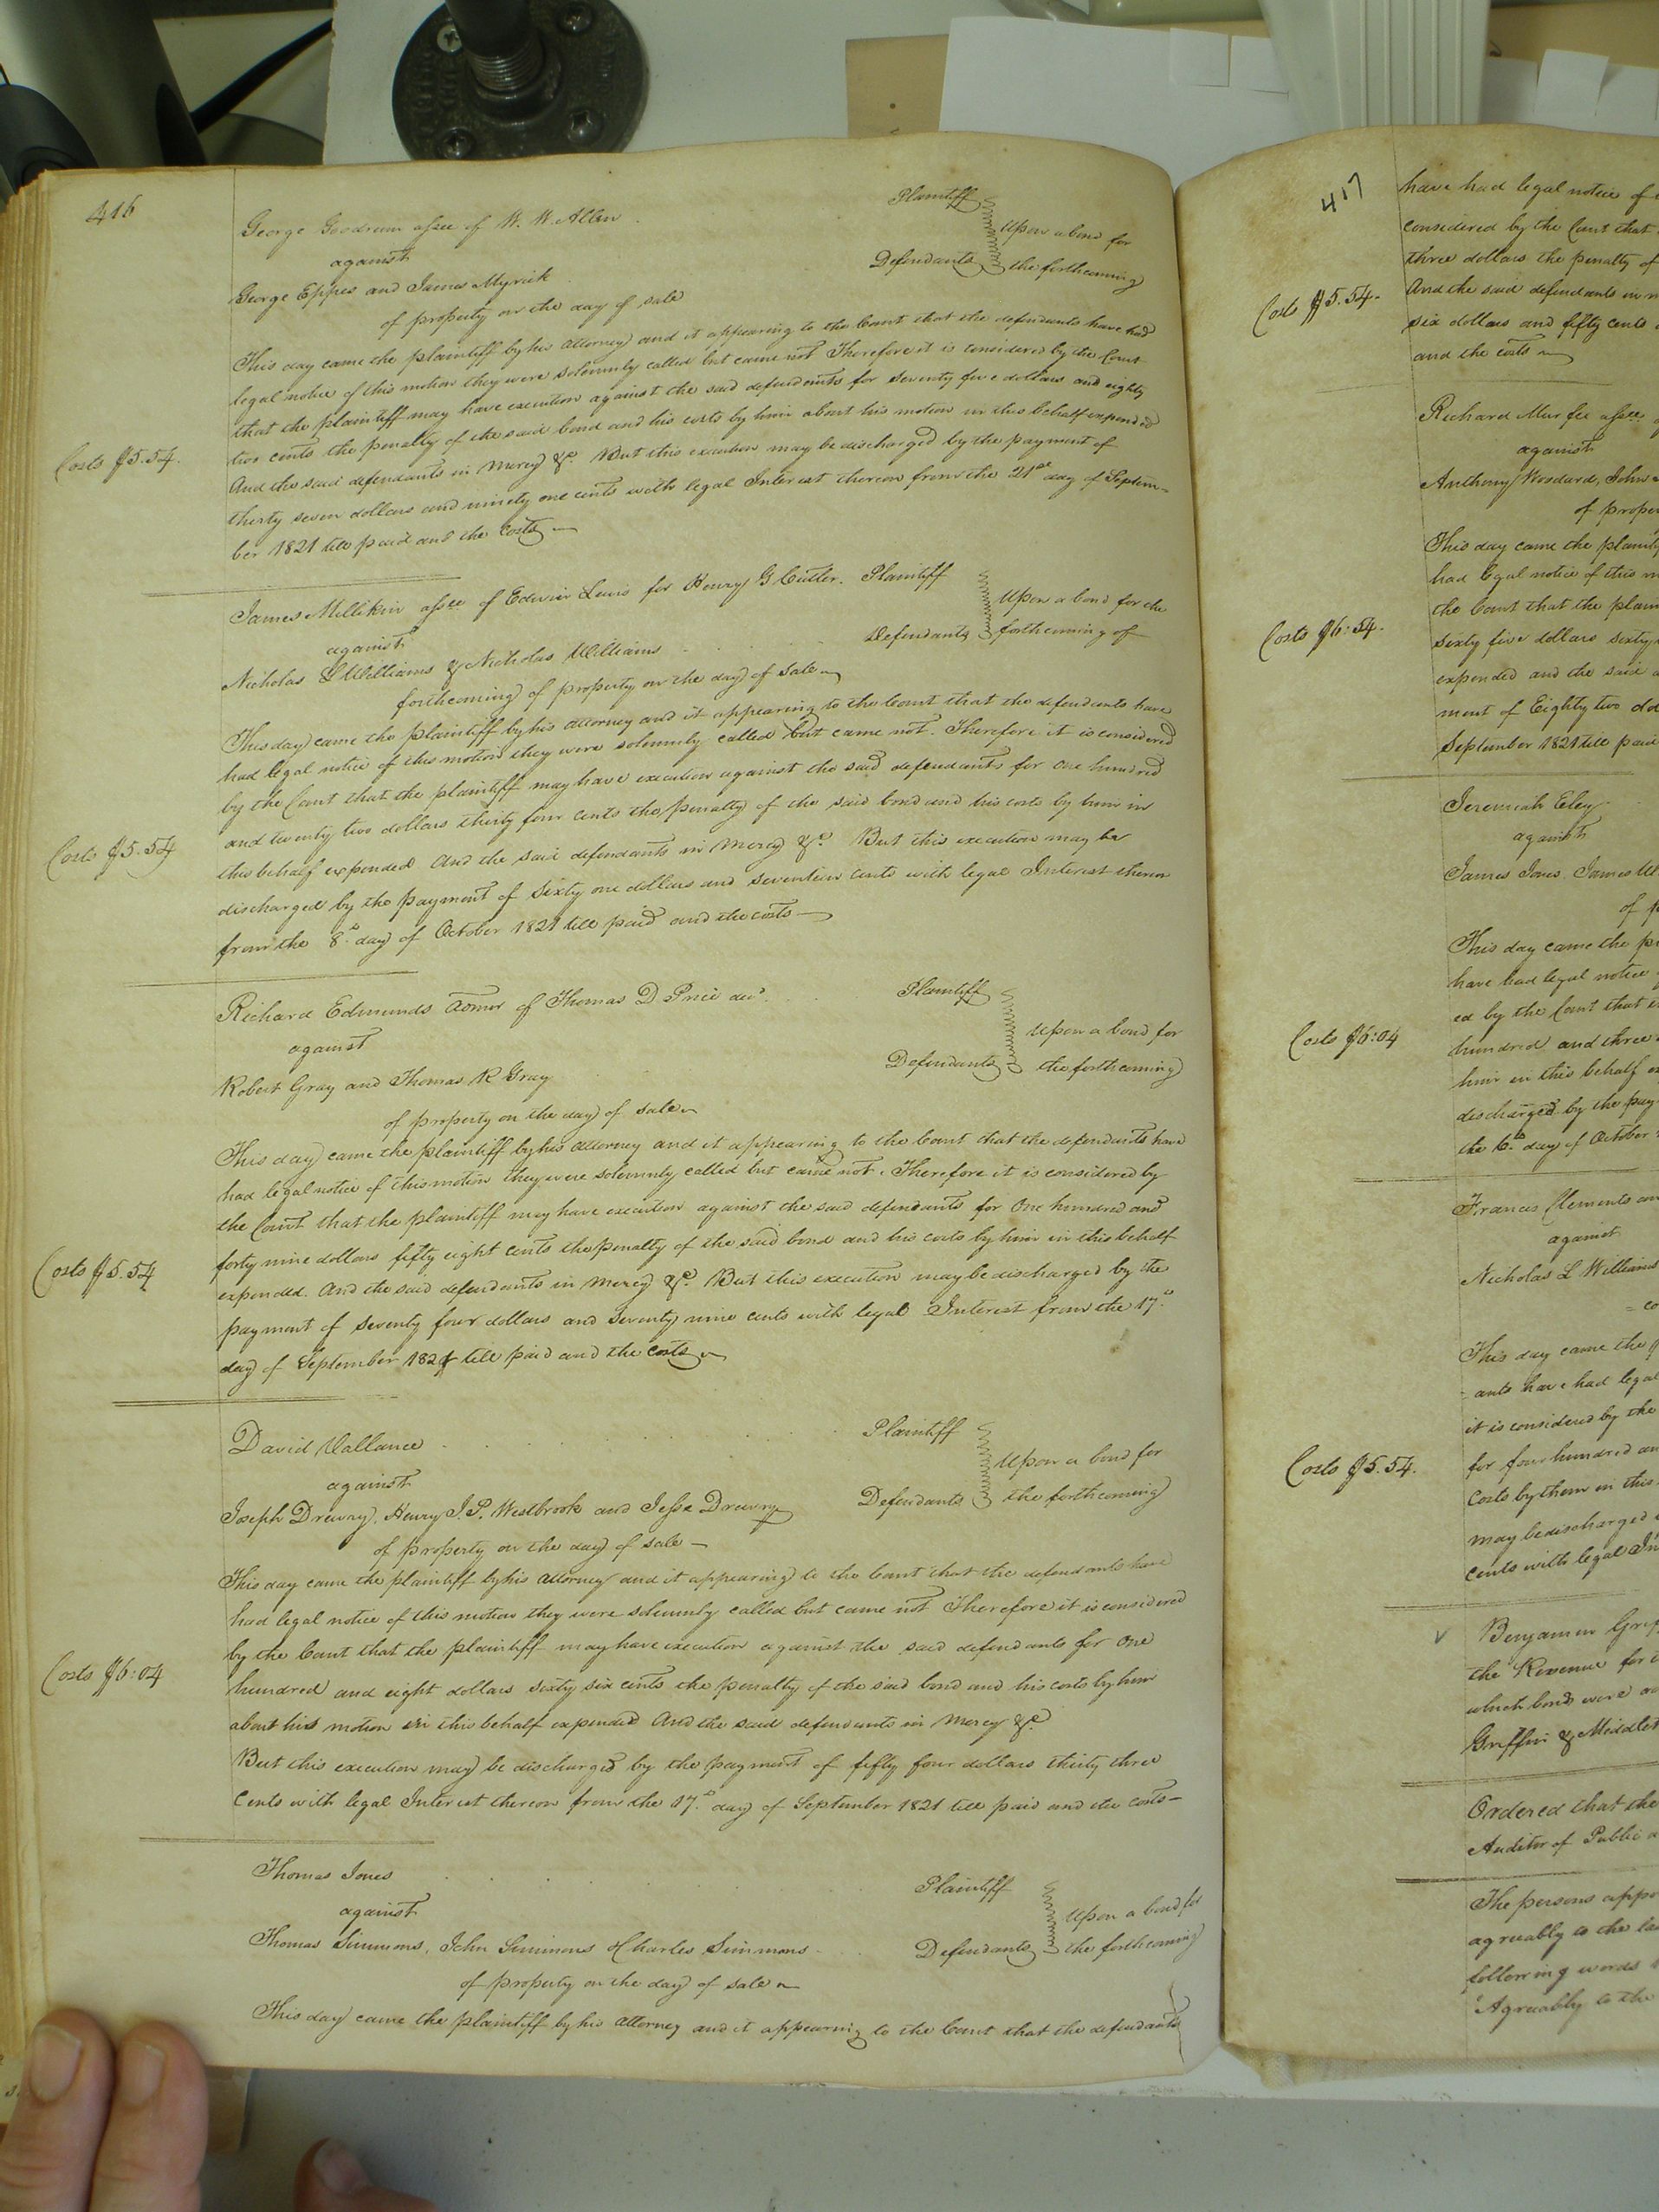 416
George Goodrum assee of W. W. Allen Plaintiff
against Upon a bond for
George Eppes and James Myrick Defendants the forthcoming
of property on the day of sale
This day came the plaintiff by his attorney and it appearing to the Court that the defendants have had
legal notice of this motion they were solemnly called but came not Therefore it is considered by the Court
that the plaintiff may have execution against the said defendants for seventy five dollars and eighty
two cents the penalty of the said bond and his costs by him about his motion in this behalf expended
Costs $5.54. And the said defendants in Mercy &c. But this execution may be discharged by the payment of
thirty seven dollars and ninety one cents with legal Interest thereon from the 21st day of Septem-
ber 1821 till paid and the Costs
James Millikin assee of Edwin Lewis for Henry G Cutler. Plaintiff
against Upon a bond for the
Nicholas L Williams & Nicholas Williams Defendants forthcoming of
forthcoming of property on the day of sale
This day came the plaintiff by his attorney and it appearing to the Court that the defendants have
had legal notice of this motion they were solemnly called but came not. Therefore it is considered
by the Court that the plaintiff may have execution against the said defendants for one hundred
and twenty two dollars thirty four cents the penalty of the said bond and his costs by him in
Costs $5.54 this behalf expended And the said defendants in Mercy &c. But this execution may be
discharged by the payment of sixty one dollars and seventeen cents with legal Interest thereon
from the 8th day of October 1821 till paid and the costs
Richard Edmunds admor of Thomas D Price decd. Plaintiff
against Upon a bond for
Robert Gray and Thomas R Gray Defendants the forthcoming
of property on the day of sale
This day came the plaintiff by his attorney and it appearing to the Court that the defendants have
had legal notice of this motion they were solemnly called but came not. Therefore it is considered by
the Court that the plaintiff may have execution against the said defendants for One hundred and
forty nine dollars fifty eight cents the penalty of the said bond and his costs by him in this behalf
Costs $5.54 expended. And the said defendants in Mercy &c. But this execution may be discharged by the
payment of seventy four dollars and seventy nine cents with legal Interest from the 17th
day of September 1821 till paid and the costs
David Vallance Plaintiff
against Upon a bond for
Joseph Drewry, Henry J. P. Westbrook and Jesse Drewry Defendants the forthcoming
of property on the day of sale
This day came the plaintiff by his attorney and it appearing to the Court that the defendants have
had legal notice of this motion they were solemnly called but came not Therefore it is considered
by the Court that the plaintiff may have execution against the said defendants for One
Costs $6:04 hundred and eight dollars sixty six cents the penalty of the said bond and his costs by him
about his motion in this behalf expended And the said defendants in Mercy &c
But this execution may be discharged by the payment of fifty four dollars thirty three
Cents with legal Interest thereon from the 17th day of September 1821 till paid and the costs-
Thomas Jones Plaintiff
against Upon a bond for
Thomas Simmons, John Simmons & Charles Simmons Defendants the forthcoming
of property on the day of sale
This day came the plaintiff by his attorney and it appearing to the Court that the defendants
417
have had legal notice of
considered by the Court that
three dollars the penalty of
Costs $5.54. And the said defendants in
six dollars and fifty cents
and the costs
Richard Murfee assee
against
Anthony Woodard, John
of proper
This day came the plaintif
had legal notice of this
the Court that the plain
Costs $6:54. sixty five dollars sixty
expended and the said
ment of Eighty two dol
September 1821 till paid
Jeremiah Eley
against
James Jones, James
of
This day came the
have had legal notice
ed by the Court that
Costs $6:04 hundred and three
him in this behalf
discharged by the pay
the 6th day of October
Francis Clements
against
Nicholas L Williams
This day came the
ants have had legal
it is considered by the
Costs $5.54. for four hundred
costs by them in this
may be discharged
cents with legal In
Benjamin Grif
the Revenue for
which bonds were
Griffin & Middlet
Ordered that the
Auditor of Public
The persons appo
agreeably to the la
following words
Agreeably to the